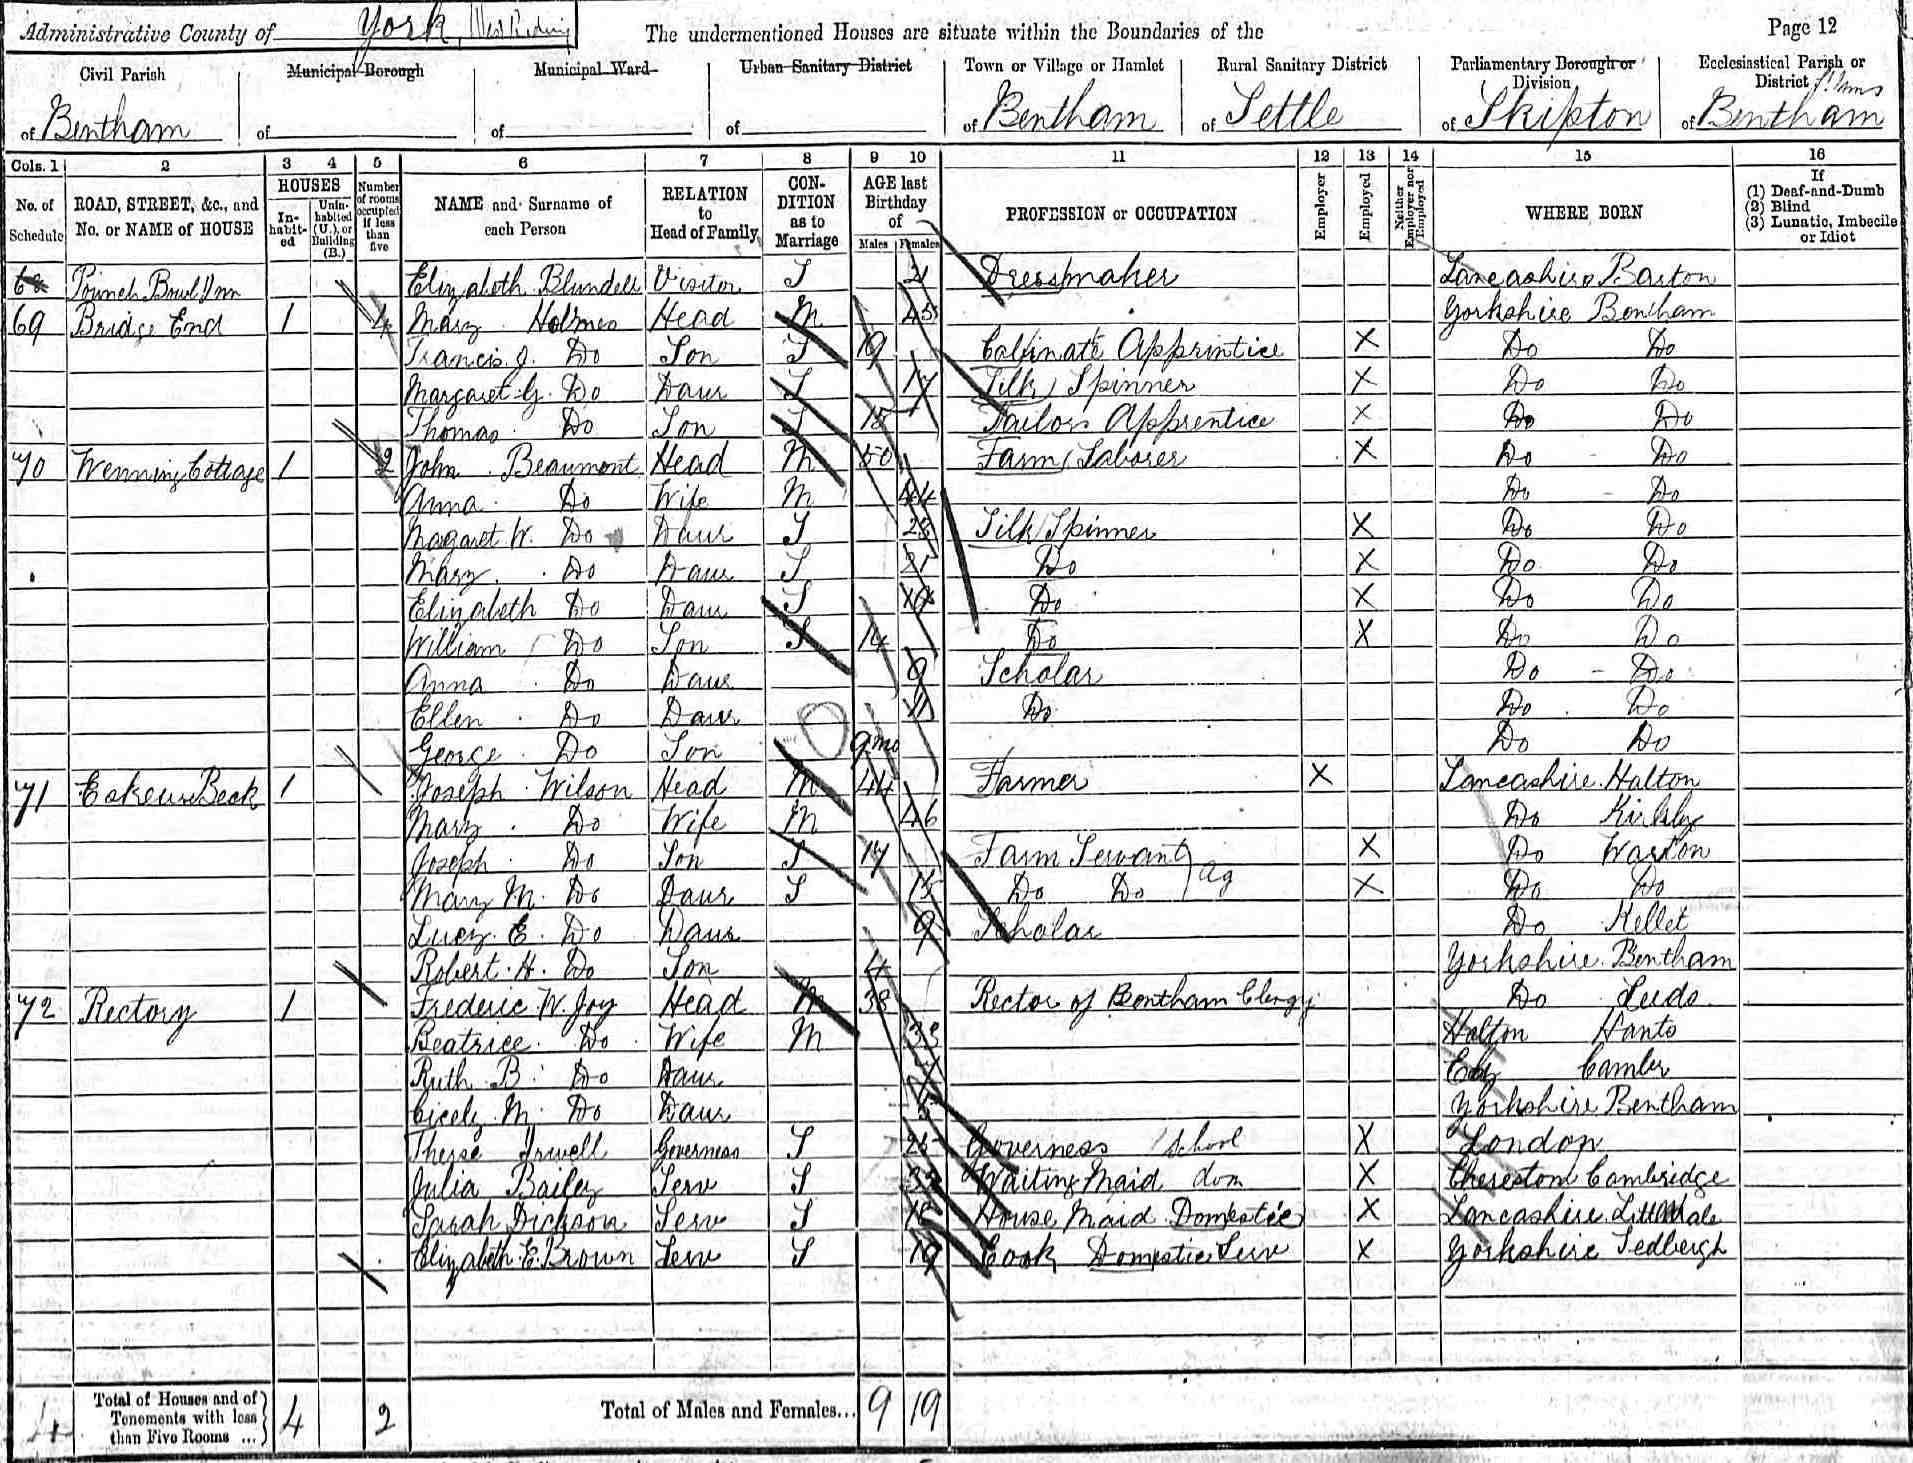 Administrative County of York, West Riding
The undermentioned Houses are situate within the Boundaries of the
Page 12
Civil Parish of Bentham
Municipal Borough of
Municipal Ward of
Urban Sanitary District of
Town or Village or Hamlet of Bentham
Rural Sanitary District of Settle
Parliamentary Borough or Division of Skipton
Ecclesiastical Parish or District of Bentham
Cols. 1 2 3 4 5 6 7 8 9 10 11 12 13 14 15 16
No. of Schedule
ROAD, STREET, &c., and No. or NAME of HOUSE
HOUSES
Inhabited
Uninhabited (U.), or Building (B.)
Number of rooms occupied if less than five
NAME and Surname of each Person
RELATION to Head of Family
CONDITION as to Marriage
AGE last Birthday of
Males Females
PROFESSION or OCCUPATION
Employer
Employed
Neither Employer nor Employed
WHERE BORN
If
(1) Deaf-and-Dumb
(2) Blind
(3) Lunatic, Imbecile or Idiot
68 Punch Bowl Inn Elizabeth Blundell Visitor S 21 Dressmaker Lancashire Barton
69 Bridge End 1 4 Mary Holmes Head M 45 Yorkshire Bentham
Francis J. Do Son S 19 Apprintice X Do Do
Margaret G. Do Daur S 17 Silk Spinner X Do Do
Thomas Do Son S 15 Tailors Apprentice X Do Do
70 Wenning Cottage 1 2 John Beaumont Head M 50 Farm Laborer X Do Do
Anna Do Wife M 44 Do Do
Magaret W. Do Daur S 23 Silk Spinner X Do Do
Mary Do Daur S 21 Do X Do Do
Elizabeth Do Daur S 19 Do X Do Do
William Do Son S 14 Do X Do Do
Anna Do Daur 9 Scholar Do Do
Ellen Do Daur Do Do Do
George Do Son 9 mo Do Do
71 Eskew Beck 1 Joseph Wilson Head M 44 Farmer X Lancashire Halton
Mary Do Wife M 46 Do Kirkby
Joseph Do Son S 17 Farm Servant Ag X Do Warton
Mary M. Do Daur S 15 Do Do X Do Do
Lucy E. Do Daur 9 Scholar Do Kellet
Robert H. Do Son 4 Yorkshire Bentham
72 Rectory 1 Frederic W. Joy Head M 38 Rector of Bentham Clergy Do Leeds
Beatrice Do Wife M 33 Halton Hants
Ruth B. Do Daur Ely Cambr
Cicely M. Do Daur Yorkshire Bentham
Therse Irwell Governess S 25 Governess School X London
Julia Bailey Serv S Waiting Maid dom X Cambridge
Sarah Dickson Serv S 18 House Maid Domestic X Lancashire Littledale
Elizabeth E. Brown Serv S 19 Cook Domestic Serv X Yorkshire Sedbergh
4 Total of Houses and of Tenements with less than Five Rooms ... 4 2 Total of Males and Females... 9 19